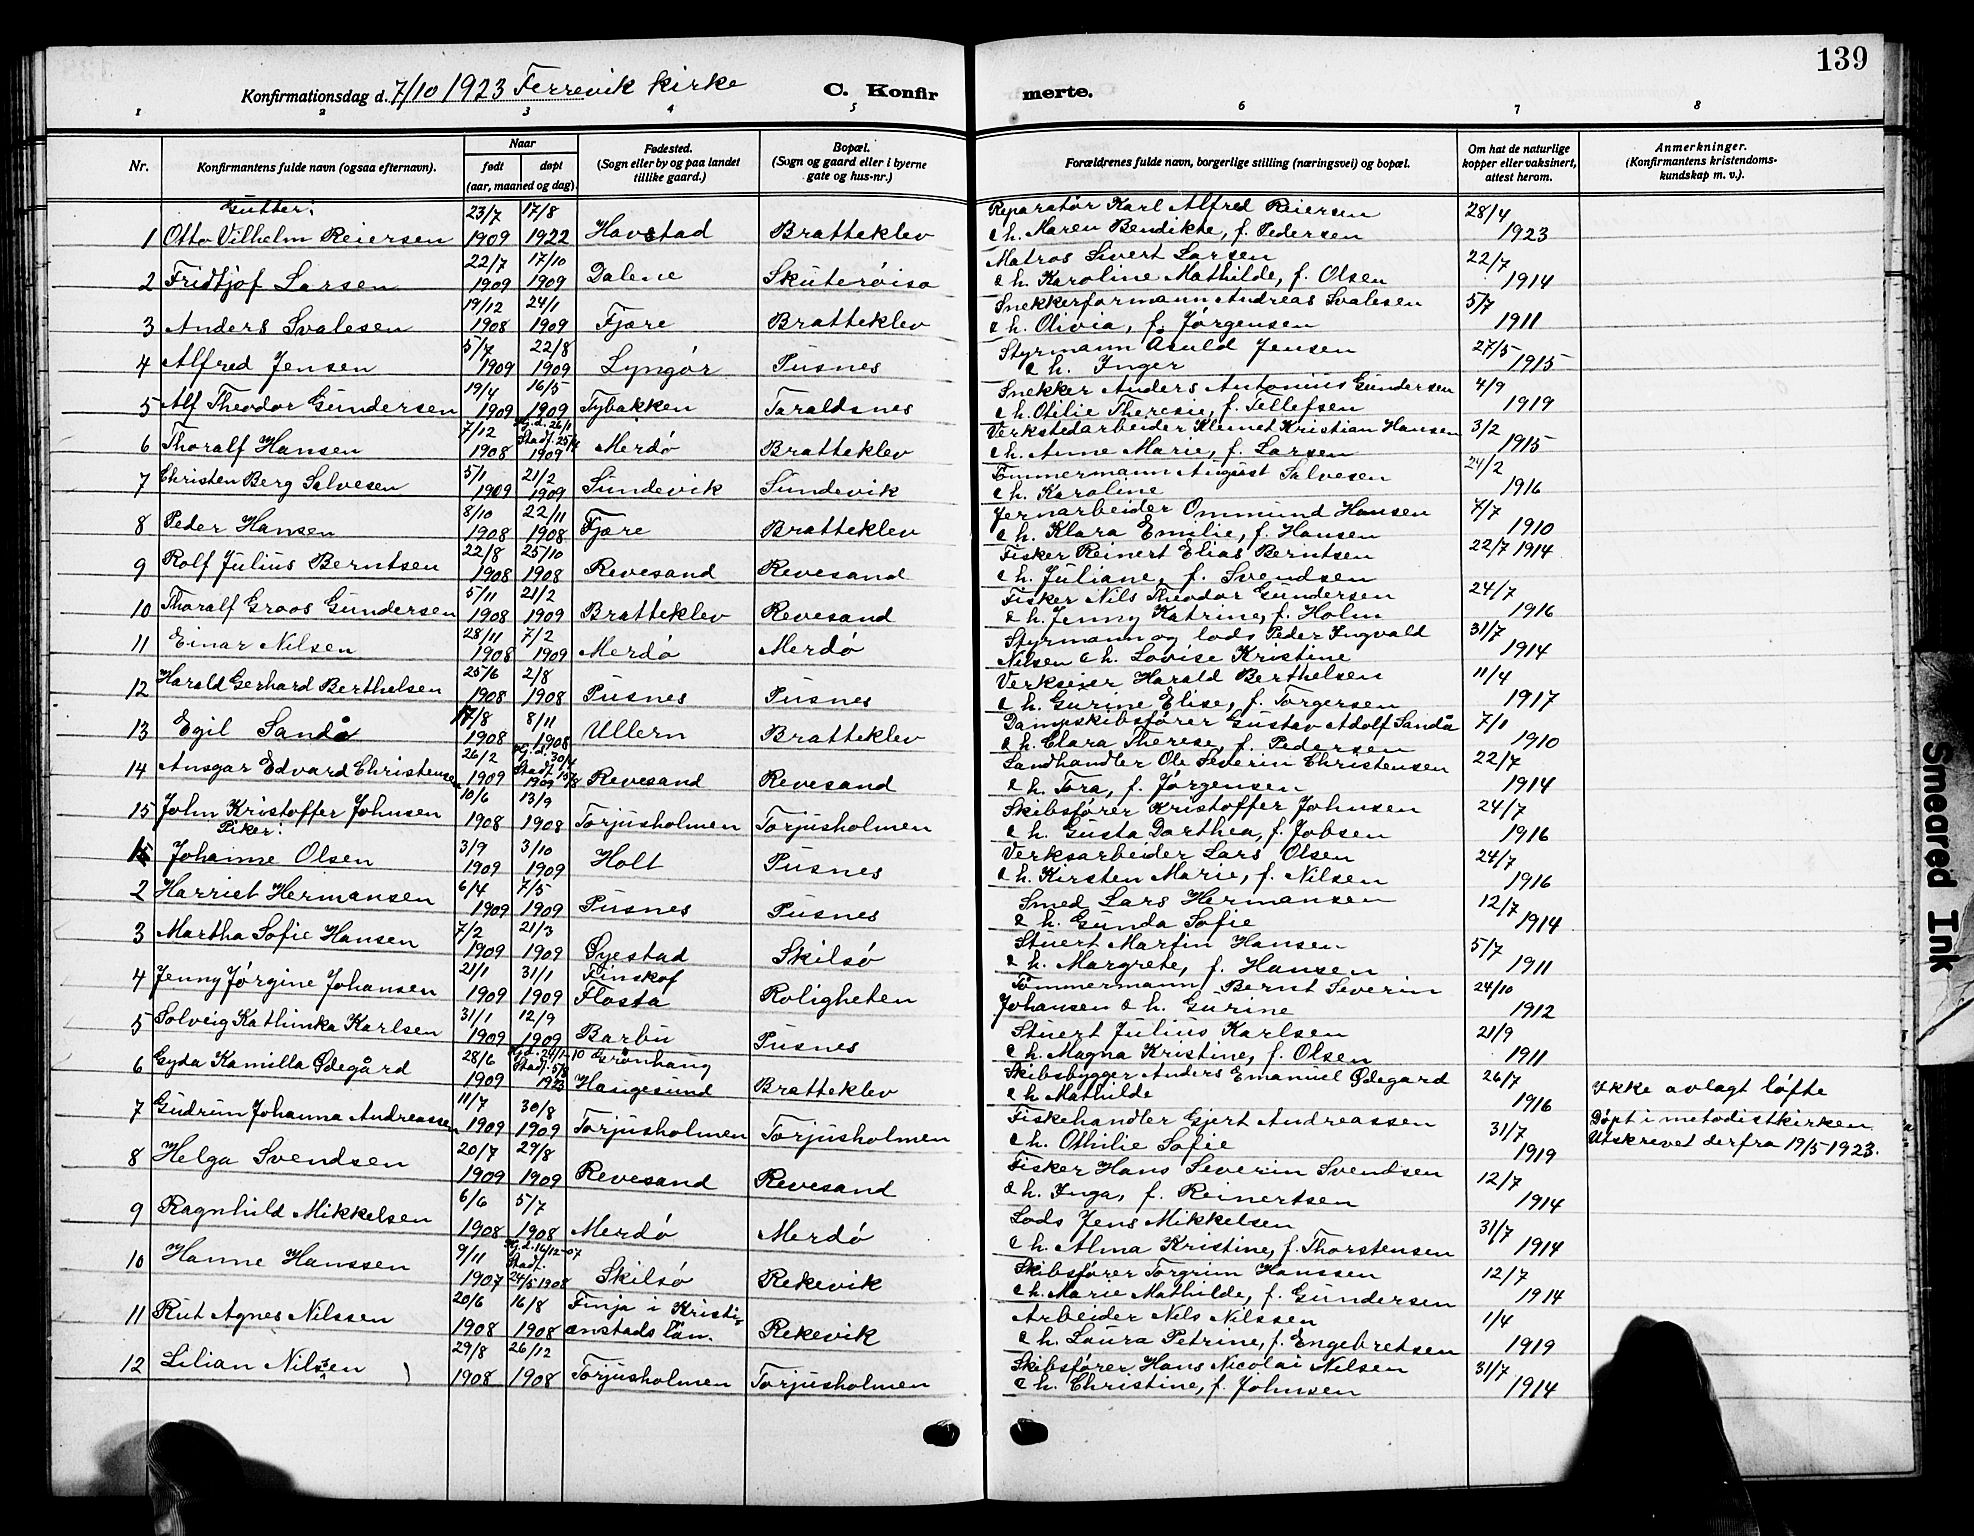 139
Konfirmationsdag d. 7/10 1923 Færevik kirke
C. Konfirmerte.
1 2 3 4 5 6 7 8
Nr. | Konfirmantens fulde navn (ogsaa efternavn). | Naar født døpt (aar, maaned og dag). | Fødested. (Sogn eller by og paa landet tillike gaard.) | Bopæl. (Sogn og gaard eller i byerne gate og hus-nr.) | Forældrenes fulde navn, borgerlige stilling (næringsvei) og bopæl. | Om hat de naturlige kopper eller vaksinert, attest herom. | Anmerkninger. (Konfirmantens kristendoms-kundskap m. v.).
Gutter:
1 Otto Vilhelm Reiersen 23/7 1909 17/8 1922 Havstad Bratteklev Reparatør Karl Alfred Reiersen & h. Maren Bendikte, f. Pedersen 28/4 1923
2 Fridtjof Larsen 22/7 1909 17/10 1909 Dalene Skuterøisa Matros Sivert Larsen & h. Karoline Mathilde, f. Olsen 22/7 1914
3 Anders Svalesen 19/12 1908 24/1 1909 Fjære Bratteklev Snekkerformann Andreas Svalesen & h. Olivia, f. Jørgensen 5/7 1911
4 Alfred Jensen 5/7 1909 22/8 1909 Lyngør Pusnes Styrmann Asuld Jensen & h. Inger 27/5 1915
5 Alf Theodor Gundersen 19/4 1909 16/5 1909 Tybakken Taraldsnes Snekker Anders Antonius Gundersen & h. Otilie Theresie, f. Tellefsen 4/9 1919
6 Thoralf Hansen 7/12 1908 Hj.d. 26/1 Stadf. 25/4 1909 Merdø Bratteklev Verkstedarbeider Klemet Kristian Hansen & h. Anne Marie, f. Larsen 3/2 1915
7 Christen Berg Salvesen 5/1 1909 21/2 1909 Sundevik Sundevik Tømmermann August Salvesen & h. Karoline 24/2 1916
8 Peder Hansen 8/10 1908 22/11 1908 Fjære Bratteklev Jernarbeider Ommund Hansen & h. Klara Emilie, f. Hansen 7/7 1910
9 Rolf Julius Berntsen 22/8 1908 25/10 1908 Revesand Revesand Fisker Reinert Elias Berntsen & h. Juliane, f. Svendsen 22/7 1914
10 Thoralf Groos Gundersen 5/11 1908 21/2 1909 Bratteklev Revesand Fisker Nils Theodor Gundersen & h. Jenny Katrine, f. Holm 24/7 1916
11 Einar Nilsen 28/11 1908 7/2 1909 Merdø Merdø Styrmann og lods Peder Ingvald Nilsen & h. Lovise Kristine 31/7 1914
12 Harald Gerhard Berthelsen 25/6 1908 2/8 1908 Pusnes Pusnes Verkseier Harald Berthelsen & h. Gurine Elise, f. Torgersen 11/4 1917
13 Egil Sandå 17/8 1908 8/11 1908 Ullern Bratteklev Dampskibsfører Gustav Adolf Sandå & h. Clara Therese, f. Pedersen 7/1 1910
14 Ansgar Edvard Christensen 26/2 1909 Hj.d. 30/4 Stadf. 15/8 1909 Revesand Revesand Landhandler Ole Severin Christensen & h. Tora, f. Jørgensen 22/7 1914
15 John Kristoffer Johnsen 10/6 1908 13/9 1908 Torjusholmen Torjusholmen Skibsfører Kristoffer Johnsen & h. Gusta Dorthea, f. Jobsen 24/7 1916
Piker:
1 Johanne Olsen 3/9 1909 3/10 1909 Holt Pusnes Verksarbeider Lars Olsen & h. Kirsten Marie, f. Nilsen 24/7 1916
2 Harriet Hermansen 6/4 1909 7/5 1909 Pusnes Pusnes Smed Lars Hermansen & h. Gunda Sofie 12/7 1914
3 Martha Sofie Hansen 7/2 1909 21/3 1909 Øyestad Skilsø Stuert Martin Hansen & h. Margrete, f. Hansen 5/7 1911
4 Jenny Jørgine Johansen 21/1 1909 31/1 1909 Finskof Flosta Roligheten Tømmermann Bernt Severin Johansen & h. Gurine 24/10 1912
5 Solveig Kathinka Karlsen 31/1 1909 12/9 1909 Barbu Pusnes Stuert Julius Karlsen & h. Magna Kristine, f. Olsen 21/9 1911
6 Gyda Kamilla Ødegård 28/6 1909 Hj.d. 29/1-10 Stadf. 5/8 1923 Grønhaug Haugesund Bratteklev Skibsbygger Anders Emanuel Ødegård & h. Mathilde 26/7 1916 Ikke avlagt løfte
7 Gudrun Johanna Andreassen 11/7 1909 30/8 1909 Torjusholmen Torjusholmen Fiskehandler Gjert Andreassen & h. Othilie Sofie 31/7 1919 Døpt i metodistkirken. Utskrevet derfra 19/5 1923.
8 Helga Svendsen 20/7 1909 29/8 1909 Revesand Revesand Fisker Hans Severin Svendsen & h. Inga, f. Reinertsen 12/7 1914
9 Ragnhild Mikkelsen 6/6 1908 5/7 1908 Merdø Merdø Lods Jens Mikkelsen & h. Alma Kristine, f. Thorstensen 31/7 1914
10 Hanne Hanssen 9/11 1907 Hj.d. 16/12-07 Stadf. 24/5 1908 Skilsø Rekevik Skibsfører Torgrim Hanssen & h. Marie Mathilde, f. Gundersen 12/7 1914
11 Rut Agnes Nilssen 20/6 1908 16/8 1908 Finja i Kristianstads län. Rekevik Arbeider Nils Nilssen & h. Laura Petrine, f. Engebretsen 1/4 1919
12 Lilian Nilsen 29/8 1908 26/12 1908 Torjusholmen Torjusholmen Skibsfører Hans Nicolai Nilsen & h. Christine, f. Johnsen 31/7 1914
Smeared Ink